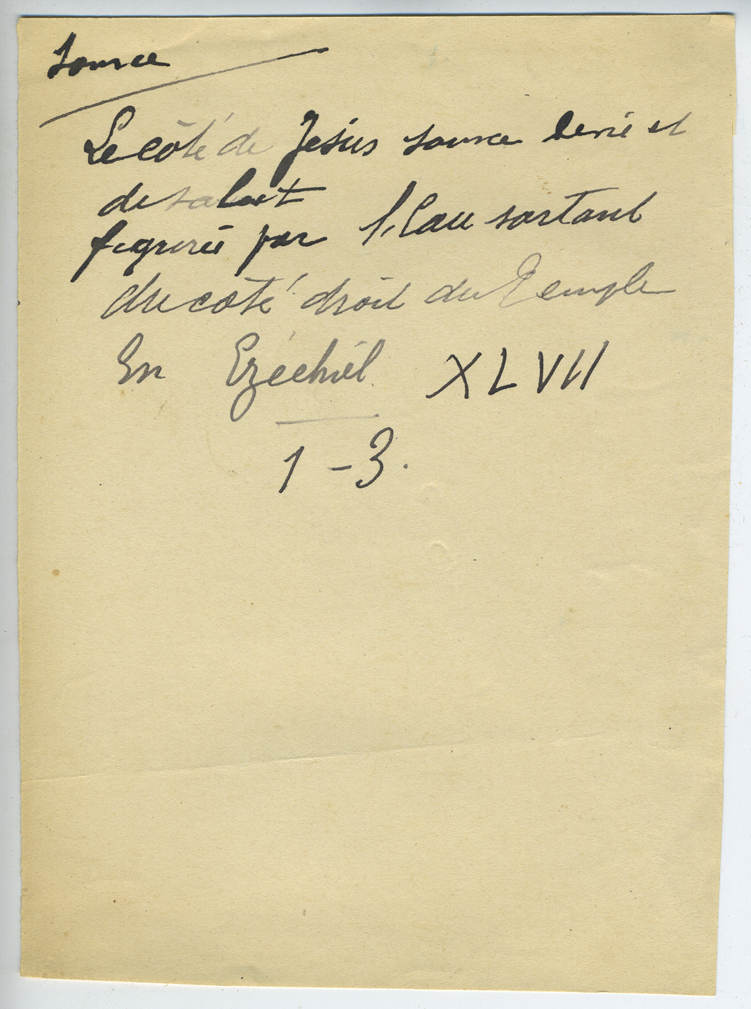 Source
Le côté de Jésus source bénie et
de salut
figurée par l'eau sortant
du côté droit du Temple
En Ezéchiel XLVII
1-3.